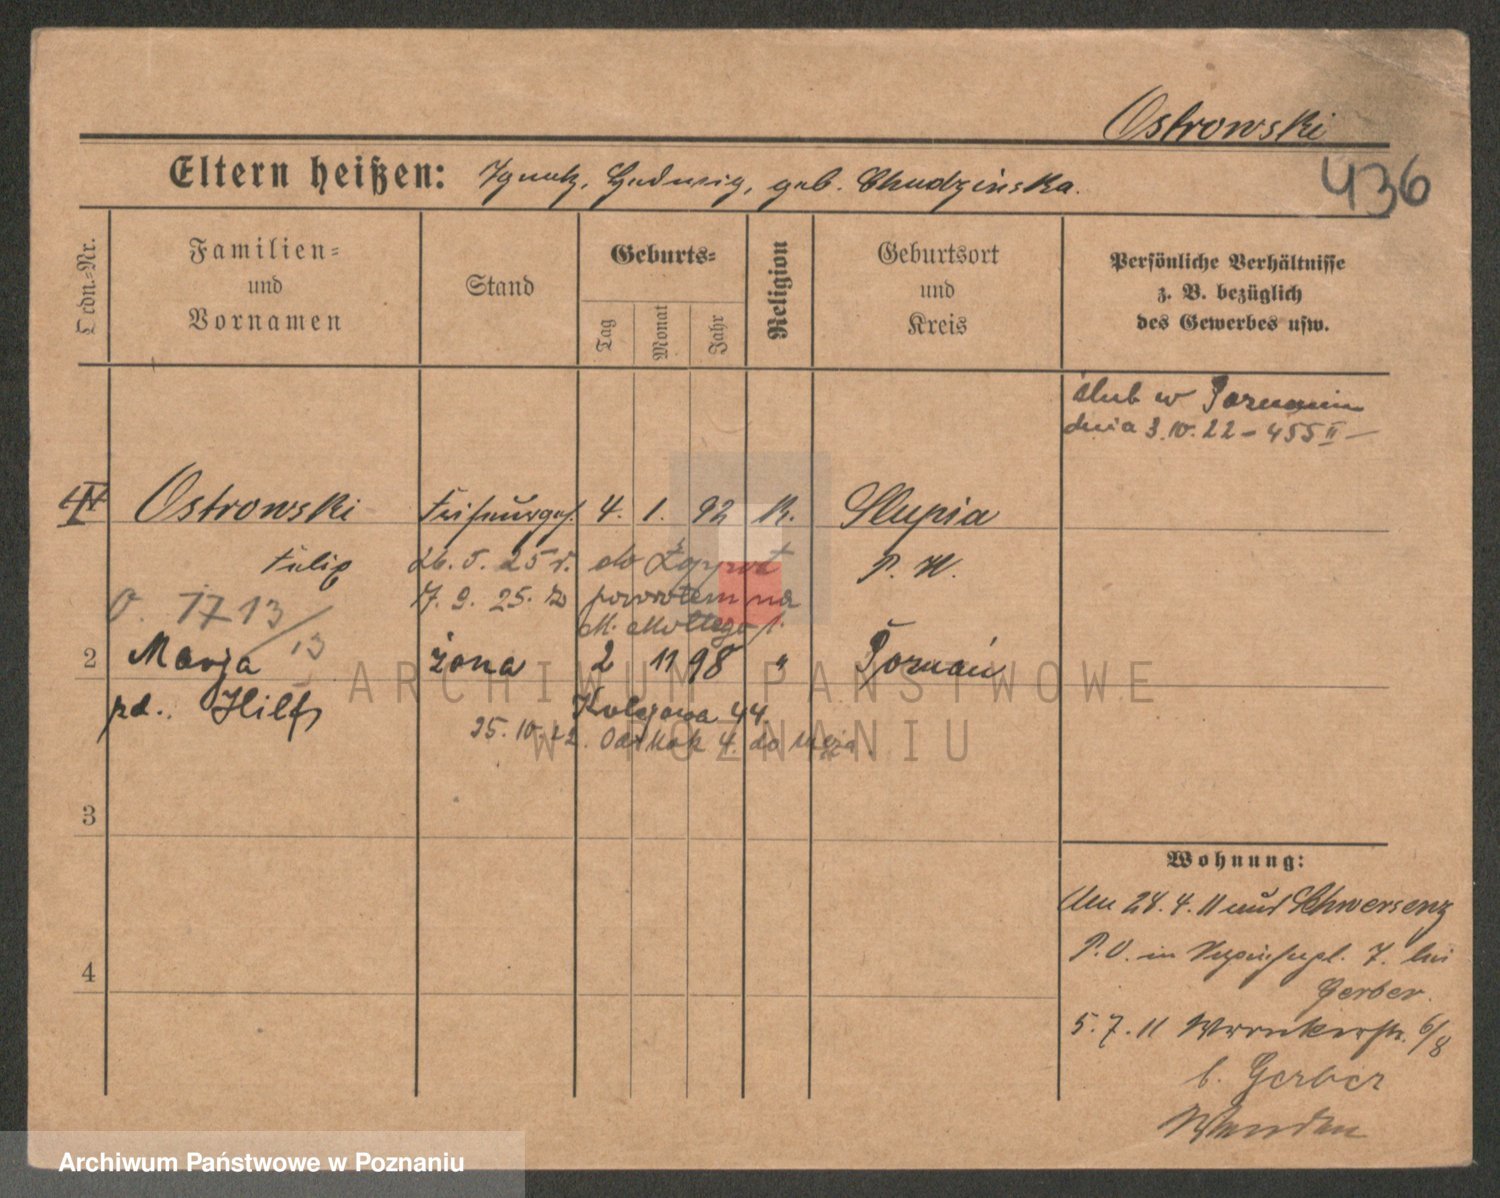 Ostrowski
436
Eltern heißen: Ignatz, Hedwig, geb. Chudzinska.
Ordn.-Nr.
Familien-
und
Vornamen
Stand
Geburts-
Tag
Monat
Jahr
Religion
Geburtsort
und
Kreis
Persönliche Verhältnisse
z. B. bezüglich
des Gewerbes usw.
ślub w Poznaniu
dnia 3.10.22 - 455 II -
Ostrowski 4. 1. 92 K. Slupia
26.5.25 r. do
7.9.25. z powrotem na
0. 1713/13
2 Marja żona 2 11 98 " Poznań
pd. Hilf
44.
25.10.22. 4. do męża.
3
4
Wohnung:
Am 24.4.11 aus Schwersenz
P.O. in 7. bei
Gerber.
5.7.11 Wronkerstr. 6/8
b. Gerber
ARCHIWUM PAŃSTWOWE
W POZNANIU
Archiwum Państwowe w Poznaniu